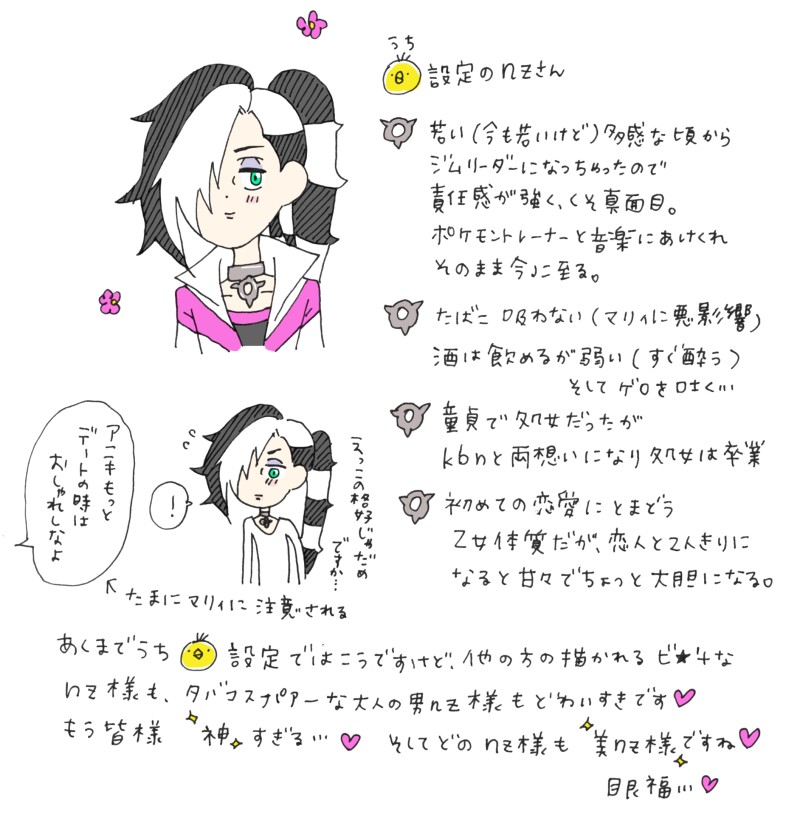 うち
設定のnzさん
若い(今も若いけど)多感な頃から
ジムリーダーになっちゃったので
責任感が強く、くそ真面目。
ポケモントレーナーと音楽にあけくれ
そのまま今に至る。
たばこ吸わない(マリィに悪影響)
酒は飲めるが弱い(すぐ酔う)
そしてゲロを吐く…
童貞で処女だったが
kbnと両想いになり処女は卒業
初めての恋愛にとまどう
乙女体質だが、恋人と2人きりに
なると甘々でちょっと大胆になる。
アニキもっと
デートの時は
おしゃれしなよ
!
えっこの格好じゃだめ
ですか…
たまにマリィに注意される
あくまでうち設定ではこうですけど、他の方の描かれるビ★チな
nz様も、タバコスパァーな大人の男nz様もどわいすきです
もう皆様神すぎる… そしてどのnz様も美nz様ですね
眼福…